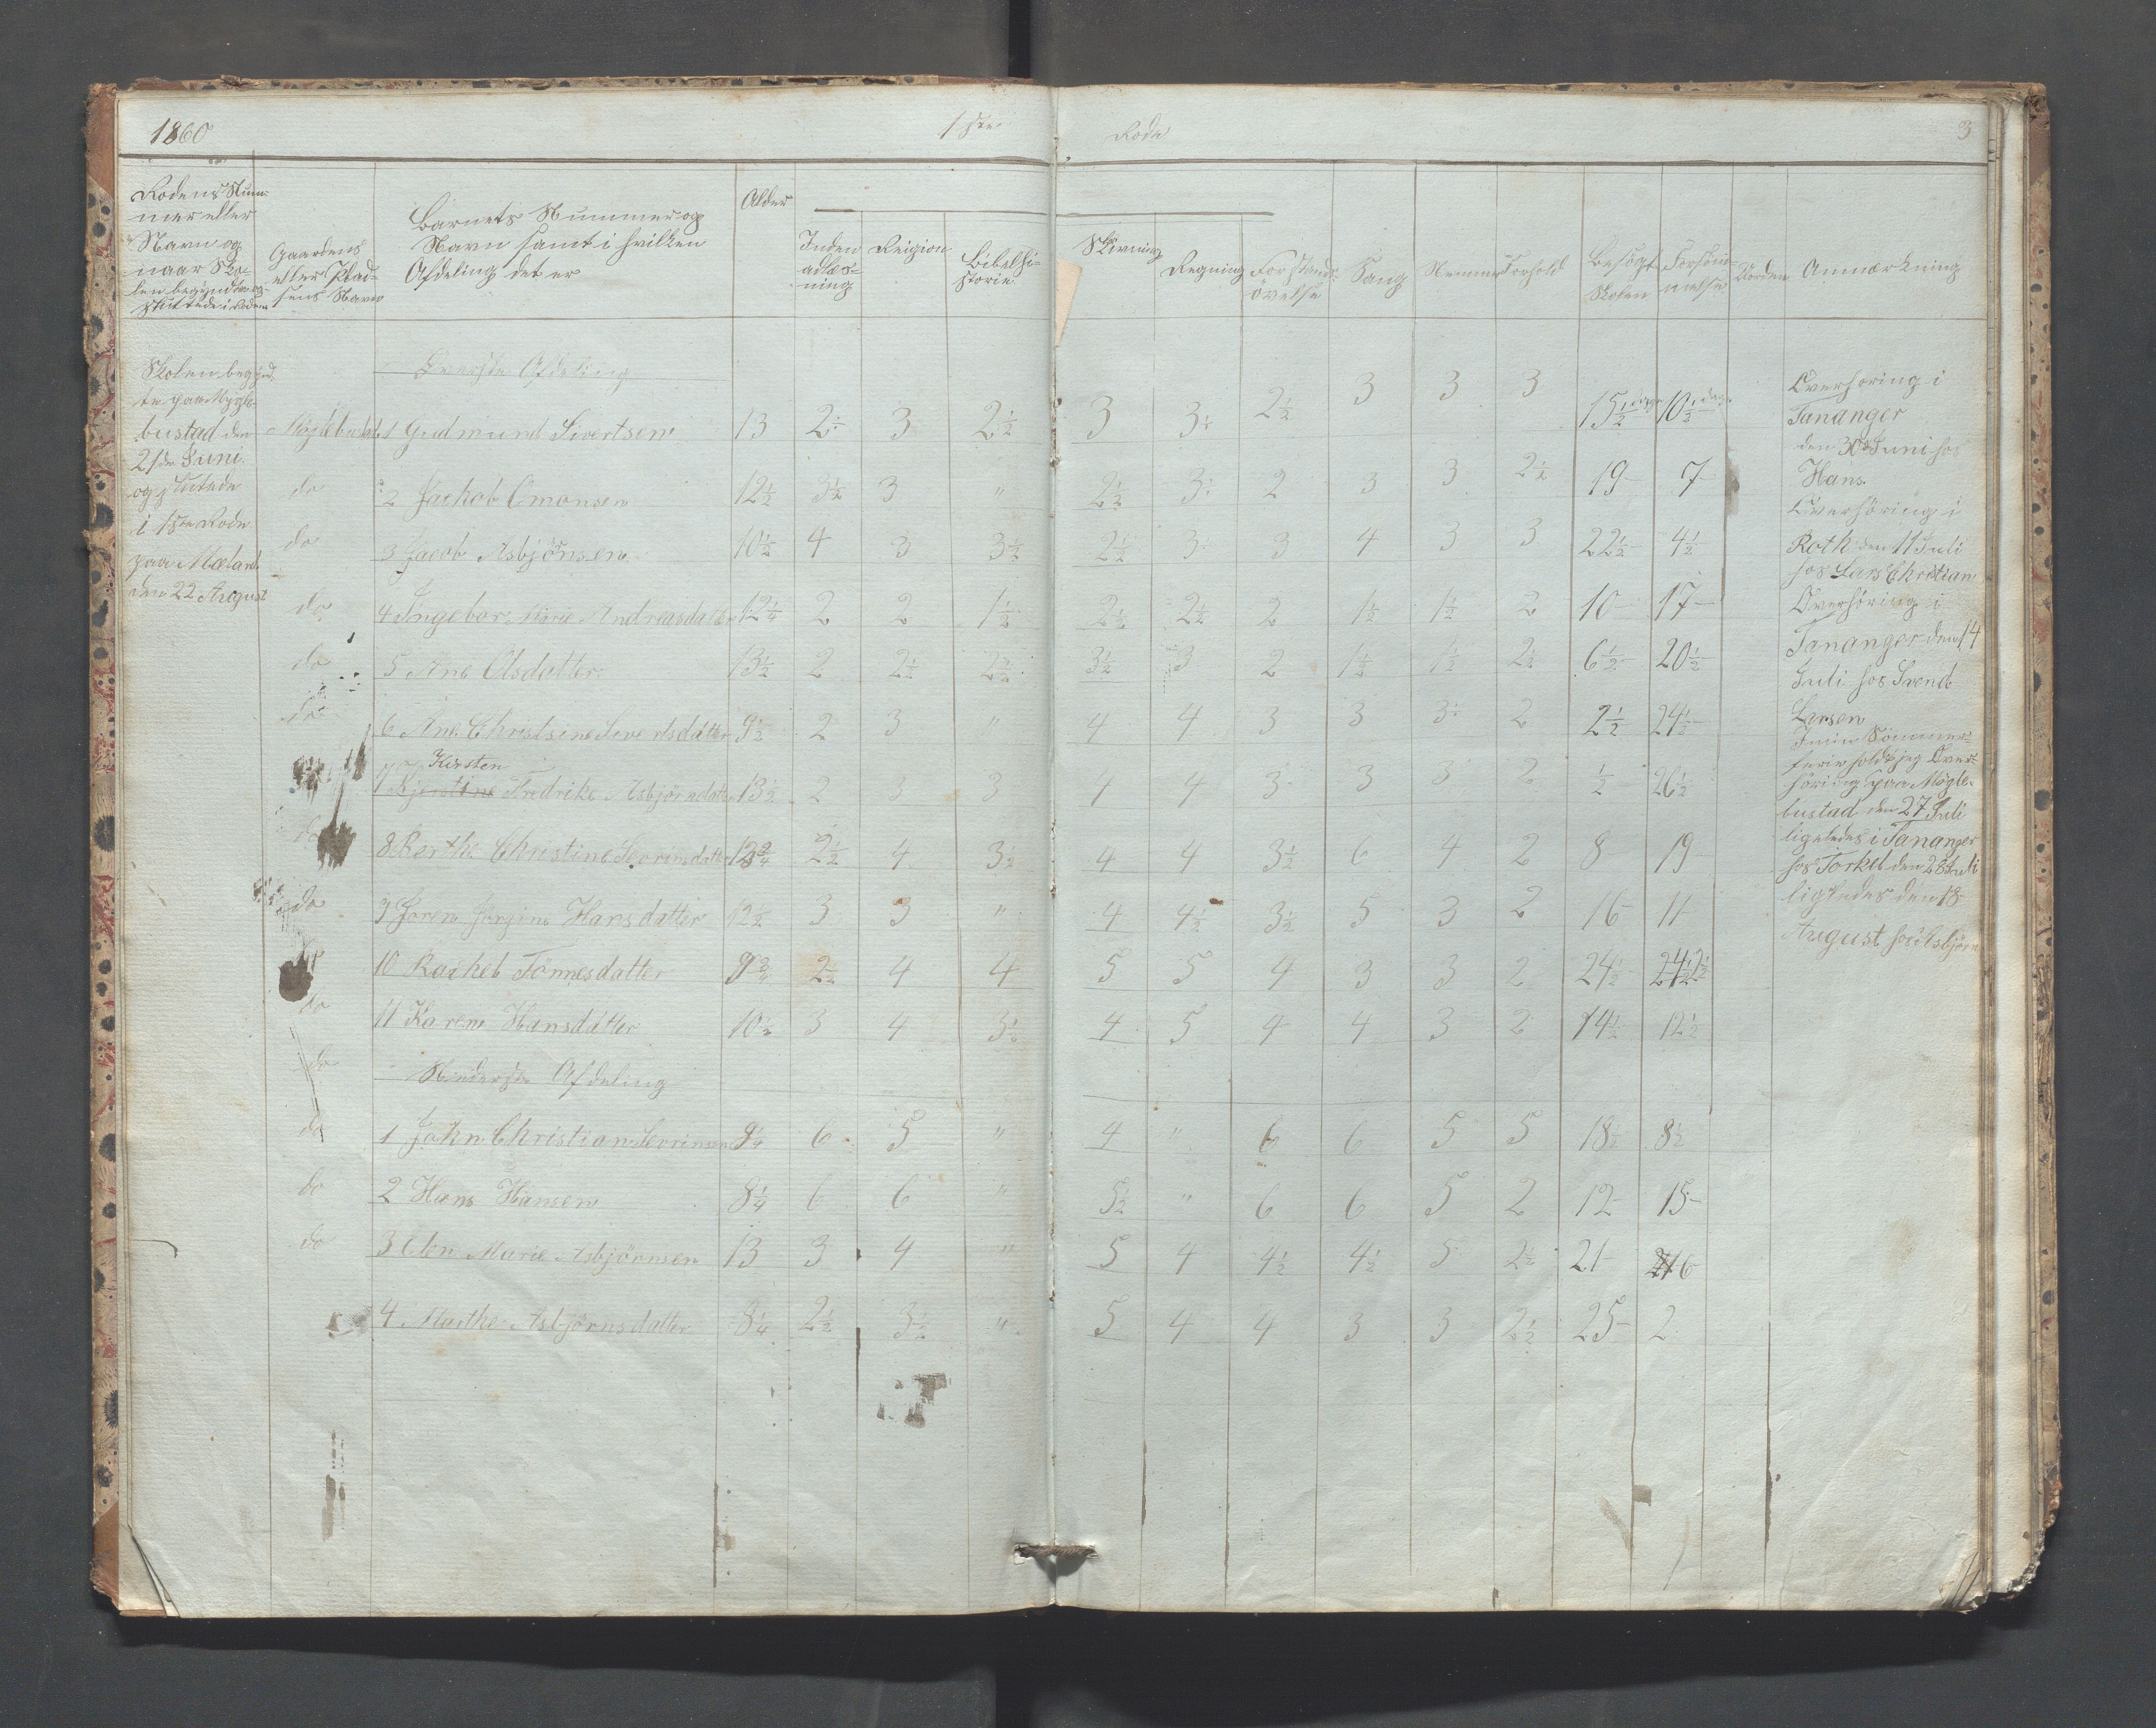 1860 1ste Rode 3
Rodens Num-
mer eller
Navn og
naar Sko-
len begyndte og
sluttede i Roden
Gaardens
eller Plad-
sens Navn
Barnets Nummer og
Navn samt i hvilken
Afdeling det er
Alder
Inden
adlæs-
ning
Reigion
Bibelhi-
storie
Skivning
Regning
Forstands-
övelse
Sang
Nemme
Forhold
Besögt
Skolen
Forsöm-
melse
Orden
Anmærkning
Skolen begynd-
te paa Mygle-
bustad den
21de Juni
og sluttede
i 1ste Rode
paa Meland
den 22 August
Överste Afdeling
Möglebustad 1 Gudmund Sivertsen 13 2½ 3 2½ 3 3½ 2½ 3 3 3 15½ dage 10½ dage
do 2 Jackob Omonsen 12½ 3½ 3 " 2½ 3½ 2 3 3 2½ 19 7
do 3 Jacob Asbjönsen 10½ 4 3 3½ 2½ 3½ 3 4 3 3 22½ 4½
do 4 Ingebor Marie Andreasdatter 12¼ 2 2 1½ 2½ 2½ 2 1½ 1½ 2 10 17
do 5 Ane Olsdatter 13½ 2 2½ 2½ 3½ 3 2 1½ 1½ 2½ 6½ 20½
do 6 Ane Christsine Sivertsdatter 9½ 2 3 " 4 4 3 3 3½ 2 2½ 24½
Kirsten
7 Kjerstine Fredrike Asbjörndatter 13½ 2 3 3 4 4 3 3 3 2 ½ 26½
do 8 Berthe Christine Sevrinsdatter 12¾ 2½ 4 3½ 4 4 3½ 6 4 2 8 19
do 9 Soren Jörgine Hansdatter 12½ 3 3 " 4 4½ 3½ 5 3 2 16 11
do 10 Rachel Tönnesdatter 9¾ 2½ 4 4 5 5 4 3 3 2 24½ 24½ 2½
do 11 Karen Hansdatter 10½ 3 4 3½ 4 5 4 4 3 2 14½ 12½
do Nederste Afdeling
do 1 John Christian Sevrinsen 9¼ 6 5 " 4 " 6 6 5 5 18½ 8½
do 2 Hans Hansen 8¼ 6 6 " 5½ " 6 6 5 2 12 15
do 3 Elen Marie Asbjörnsen 13 3 4 " 5 4 4½ 4½ 5 2½ 21 6
4 Marthe Asbjörnsdatter 8¼ 2½ 3½ " 5 4 4 3 3 2½ 25 2
Overhöring i
Tananger
den 30de Juni hos
Hans.
Overhöring i
Roth den 11 Juli
hos Lars Christian
Overhöring i
Tananger den 14
Juli hos Svend
Larsen
I min Sommer-
ferie holdt jeg Over-
höring paa Mögle-
bustad den 27 Juli
ligeledes i Tananger
hos Torkel den 28 Juli
ligeledes den 18
August hos Asbjörn